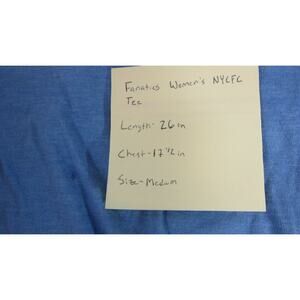 Fanatics Women's NYCFC
Tee
Length- 26 in
Chest-17 1/2 in
Size-Medium